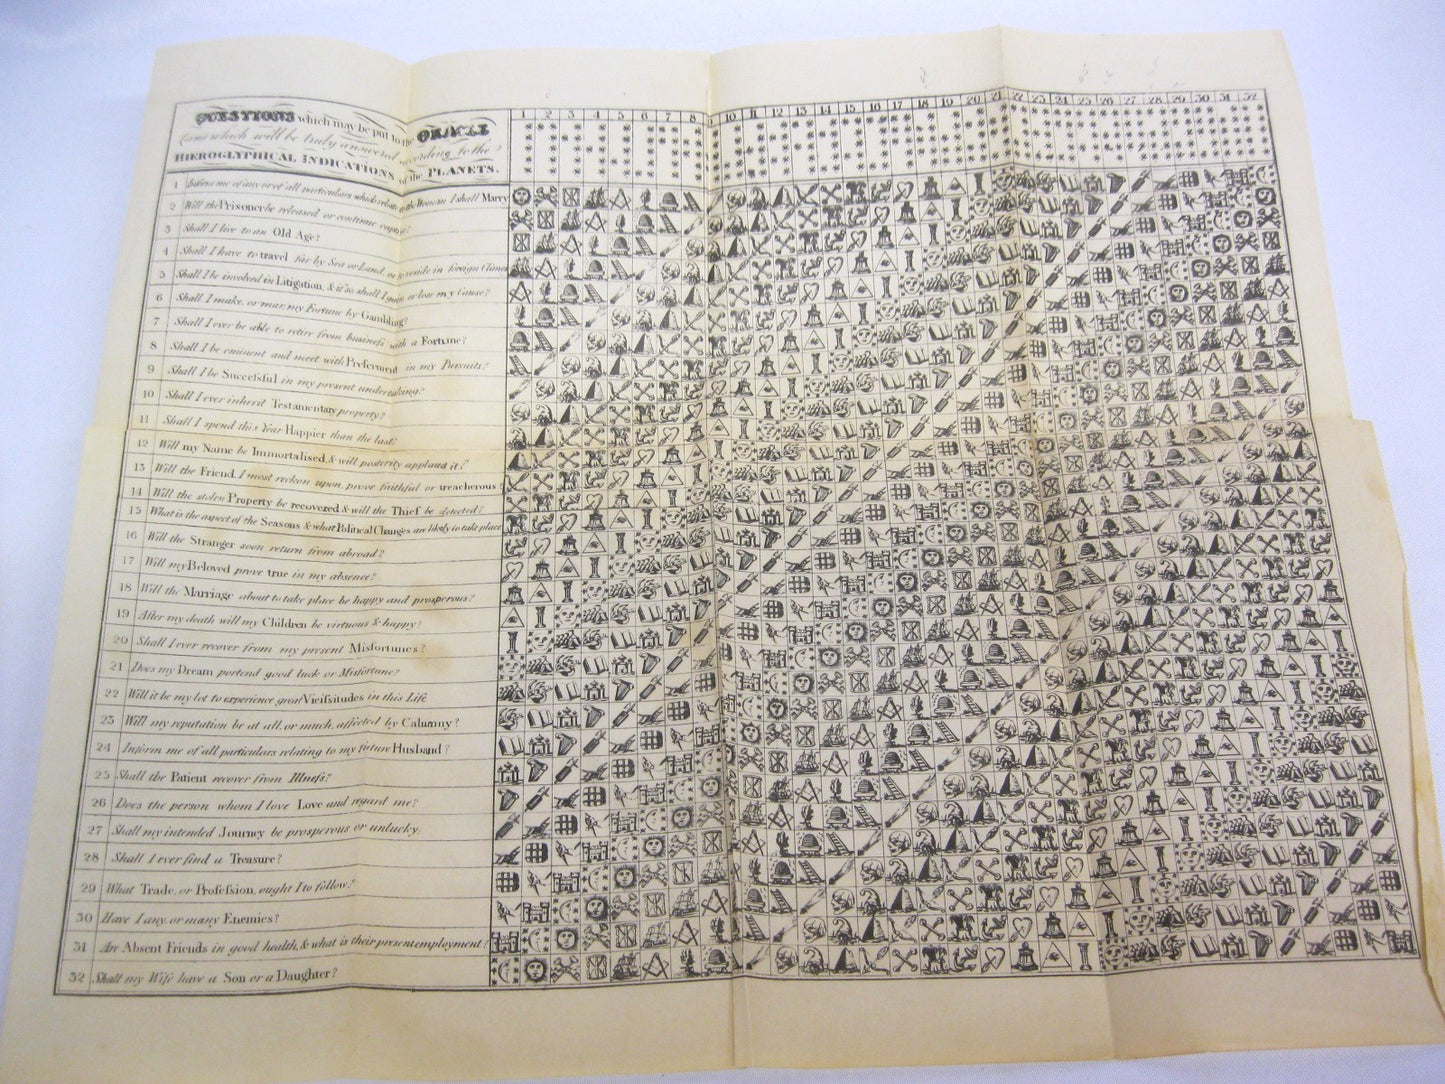 QUESTIONS which may be put to the ORACLE
(and which will be truly answered according to the)
HIEROGLYPHICAL INDICATIONS of the PLANETS.
1 2 3 4 5 6 7 8 9 10 11 12 13 14 15 16 17 18 19 20 21 22 23 24 25 26 27 28 29 30 31 32
1 Inform me of any or of all particulars which relate to the Woman I shall Marry
2 Will the Prisoner be released or continue captive?
3 Shall I live to an Old Age?
4 Shall I have to travel far by Sea or Land, or to reside in foreign Climes
5 Shall I be involved in Litigation, & if so, shall I gain or lose my Cause?
6 Shall I make, or mar, my Fortune by Gambling?
7 Shall I ever be able to retire from business with a Fortune?
8 Shall I be eminent and meet with Preferment in my Pursuits?
9 Shall I be Successful in my present undertaking?
10 Shall I ever inherit Testamentary property?
11 Shall I spend this Year Happier than the last?
12 Will my Name be Immortalised, & will posterity applaud it?
13 Will the Friend, I most reckon upon, prove faithful or treacherous?
14 Will the stolen Property be recovered & will the Thief be detected?
15 What is the aspect of the Seasons & what Political Changes are likely to take place
16 Will the Stranger soon return from abroad?
17 Will my Beloved prove true in my absence?
18 Will the Marriage about to take place be happy and prosperous?
19 After my death will my Children be virtuous & happy?
20 Shall I ever recover from my present Misfortunes?
21 Does my Dream portend good luck or Misfortune?
22 Will it be my lot to experience great Vicifsitudes in this Life
23 Will my reputation be at all, or much, affected by Calumny?
24 Inform me of all particulars relating to my future Husband?
25 Shall the Patient recover from Illnefs?
26 Does the person whom I love Love and regard me?
27 Shall my intended Journey be prosperous or unlucky.
28 Shall I ever find a Treasure?
29 What Trade, or Profefsion, ought I to follow?
30 Have I any, or many Enemies?
31 Are Absent Friends in good health, & what is their present employment?
32 Shall my Wife have a Son or a Daughter?